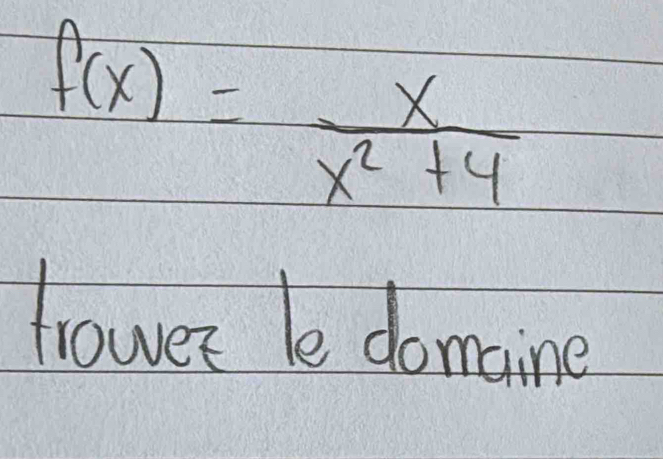 f(x) = x / x² + 4
trouvez le domaine